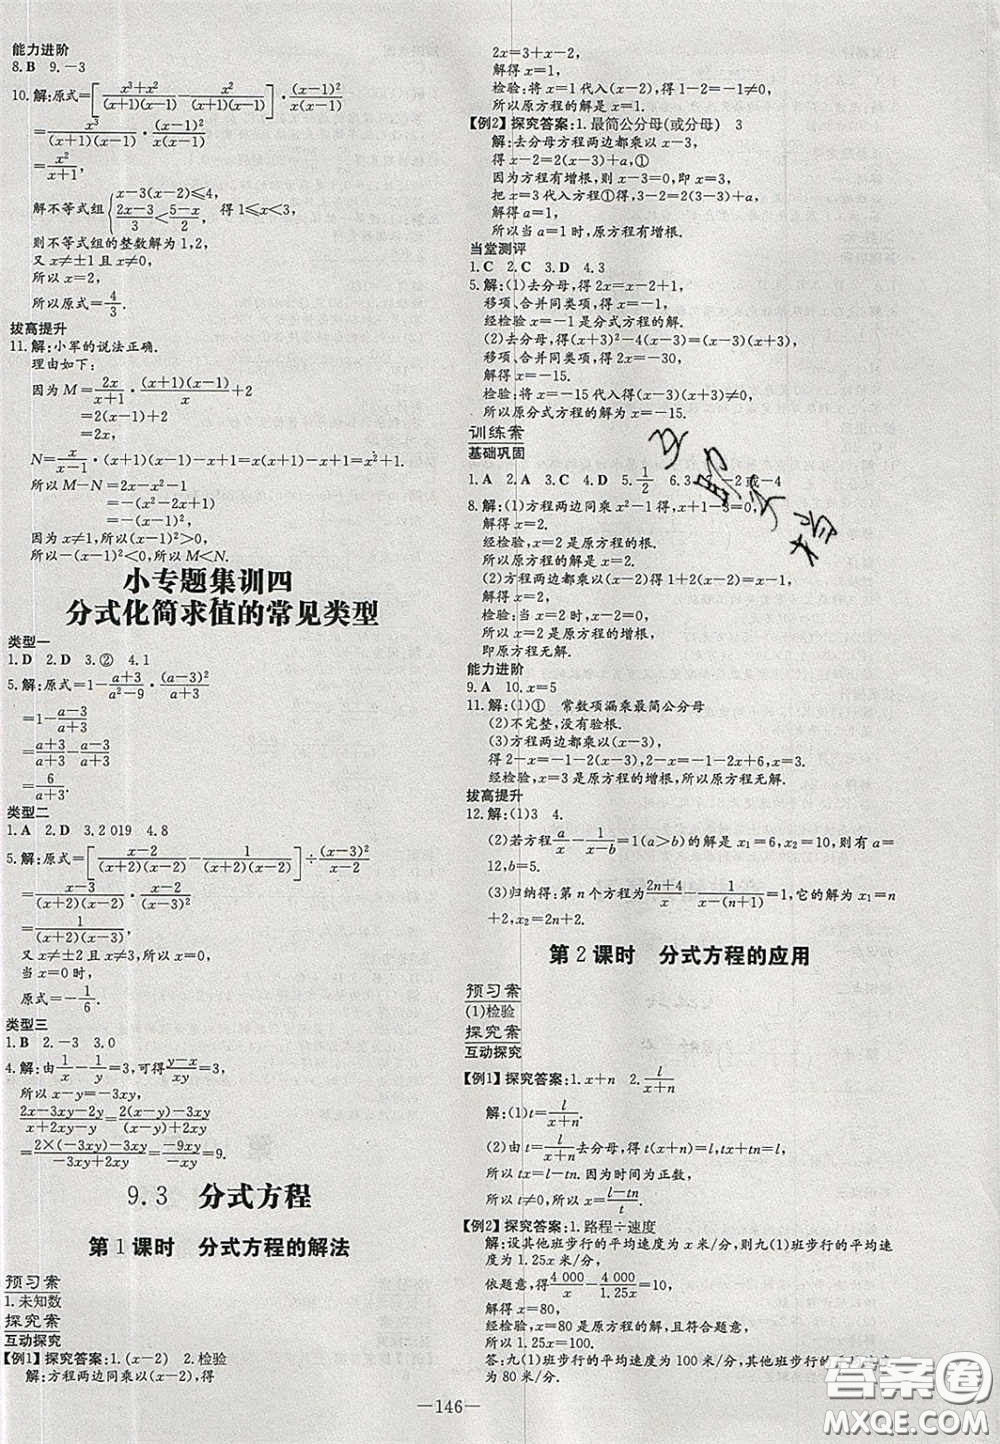 能力进阶
8.B 9.-3
10.解:原式=[(x³+x²)/((x+1)(x-1))-x²/((x+1)(x-1))]·(x-1)²/(x(x-1))
=x³/((x+1)(x-1))·(x-1)²/(x(x-1))
=x²/(x+1),
解不等式组{x-3(x-2)≤4, (2x-3)/3<(5-x)/2, 得1≤x<3,
则不等式组的整数解为1,2,
又x≠±1且x≠0,
所以x=2,
所以原式=4/3.
拔高提升
11.解:小军的说法正确.
理由如下:
因为M=2x/(x+1)·(x+1)(x-1)/x+2
=2(x-1)+2
=2x,
N=x/(x-1)·(x+1)(x-1)-(x+1)(x-1)=x²+x-x²+1=x+1.
所以M-N=2x-(x²+1)
=-(x-1)²,
因为x≠1,所以(x-1)²>0,
所以-(x-1)²<0,所以M<N.
小专题集训四
分式化简求值的常见类型
类型一
1.D 2.D 3.② 4.1
5.解:原式=1-(a+3)/(a²-9)·(a-3)²/(a+3)
=1-(a-3)/(a+3)
=(a+3)/(a+3)-(a-3)/(a+3)
=6/(a+3).
类型二
1.A 2.D 3.2 019 4.8
5.解:原式=[(x-2)/((x+2)(x-2))-1/((x+2)(x-2))]÷(x-3)²/(x-2)
=(x-3)/((x+2)(x-2))·(x-2)/(x-3)²
=1/((x+2)(x-3)),
又x≠±2且x≠3,所以x=0,
原式=-1/6.
类型三
1.B 2.-3 3.0
4.解:由1/x-1/y=3,可得(y-x)/xy=3,
所以x-y=-3xy,
(2x-3xy-2y)/(x-y+2xy)=(2(x-y)-3xy)/((x-y)+2xy)
=(2×(-3xy)-3xy)/(-3xy+2xy)=(-9xy)/(-xy)=9.
9.3 分式方程
第1课时 分式方程的解法
预习案
1.未知数
探究案
互动探究
【例1】探究答案:1.(x-2) 2.检验
解:方程两边同乘以(x-2),得
2x=3+x-2,
解得x=1,
检验:将x=1代入(x-2),得1-2=-1≠0,
所以原方程的解是x=1.
【例2】探究答案:1.最简公分母(或分母) 3
解:去分母方程两边都乘以x-3,
得x=2(x-3)+a,①
因为方程有增根,则x-3=0,即x=3,
把x=3代入方程①得,3=2(3-3)+a,
解得a=3,
所以当a=3时,原方程有增根.
当堂测评
1.C 2.C 3.D 4.3
5.解:(1)去分母,得2x=x-2+1,
移项、合并同类项,得x=-1,
经检验x=-1是分式方程的解.
(2)去分母,得(x+3)²-4(x-3)=(x-3)(x+3),
移项、合并同类项,得2x=-30,
解得x=-15.
检验:将x=-15代入得(x-3)(x+3)≠0,
所以原分式方程的解为x=-15.
训练案
基础巩固
1.A 2.A 3.C 4.D 5.1/2 6.3 -2或-4
8.解:(1)方程两边同乘x²-1得,x+1-3=0,
解得x=2.
经检验,x=2是原方程的解,
所以原方程的解是x=2.
(2)方程两边都乘以(x-2),得
解得x=2.
经检验:当x=2时,x-2=0,
所以x=2是原方程的增根,
即原方程无解.
能力进阶
9.A 10.x=5
11.解:(1)① 常数项漏乘最简公分母
(2)不完整,没有验根.
(3)方程两边都乘以(x-3),
得2-x=-1-2(x-3),2-x=-1-2x+6,x=3,
经检验,x=3是原方程的增根,所以原方程无解.
拔高提升
12.解:(1)3 4.
(2)若方程a/x-1/(x-b)=1(a>b)的解是x₁=6,x₂=10,则有a=
12,b=5.
(3)归纳得:第n个方程为(2n+4)/x-1/(x-(n+1))=1,它的解为x₁=n
+2,x₂=2n+2.
第2课时 分式方程的应用
预习案
(1)检验
探究案
互动探究
【例1】探究答案:1.x+n 2.l/(x+n)
解:(1)t=l/(x+n).
(2)由t=l/(x+n)去分母,得t(x+n)=l,tx+tn=l,
所以tx=l-tn.因为时间为正数,
所以t≠0,所以x=(l-tn)/t.
【例2】探究答案:1.路程÷速度
解:设其他班步行的平均速度为x米/分,则九(1)班步行的平均速度
为1.25x米/分.
依题意,得4 000/x-4 000/1.25x=10,
解得x=80,
经检验,x=80是原方程的解,且符合题意,
所以1.25x=100.
答:九(1)班步行的平均速度为100米/分,其他班步行的平均速度
为80米/分.
—146—
互助文档
答案圈
MXQE.COM